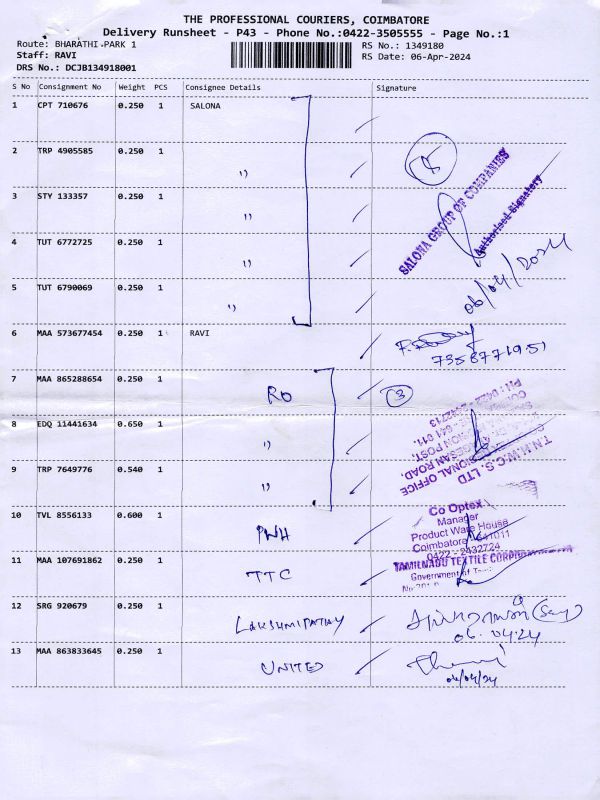 THE PROFESSIONAL COURIERS, COIMBATORE
Delivery Runsheet - P43 - Phone No.:0422-3505555 - Page No.:1
Route: BHARATHI PARK 1 RS No.: 1349180
Staff: RAVI RS Date: 06-Apr-2024
DRS No.: DCJB134918001
S No Consignment No Weight PCS Consignee Details Signature
1 CPT 710676 0.250 1 SALONA
2 TRP 4905585 0.250 1 ")
3 STY 133357 0.250 1 ")
4 TUT 6772725 0.250 1 ")
5 TUT 6790069 0.250 1 ")
SALONA GROUP OF COMPANIES
Authorised Signatory
06/04/2024
6 MAA 573677454 0.250 1 RAVI
7358771951
7 MAA 865288654 0.250 1 RO 3
8 EDQ 11441634 0.650 1 ")
9 TRP 7649776 0.540 1 ")
T.N.H.W.C.S. LTD
10 TVL 8556133 0.600 1 PWH
Co Optex
Manager
Product Ware House
Coimbatore 641011
0422 - 2432724
11 MAA 107691862 0.250 1 TTC
TAMILNADU TEXTILE CORPORATION
Government of
12 SRG 920679 0.250 1 LAKSHMIPATHY
06.04.24
13 MAA 863833645 0.250 1 UNITED
06/04/24